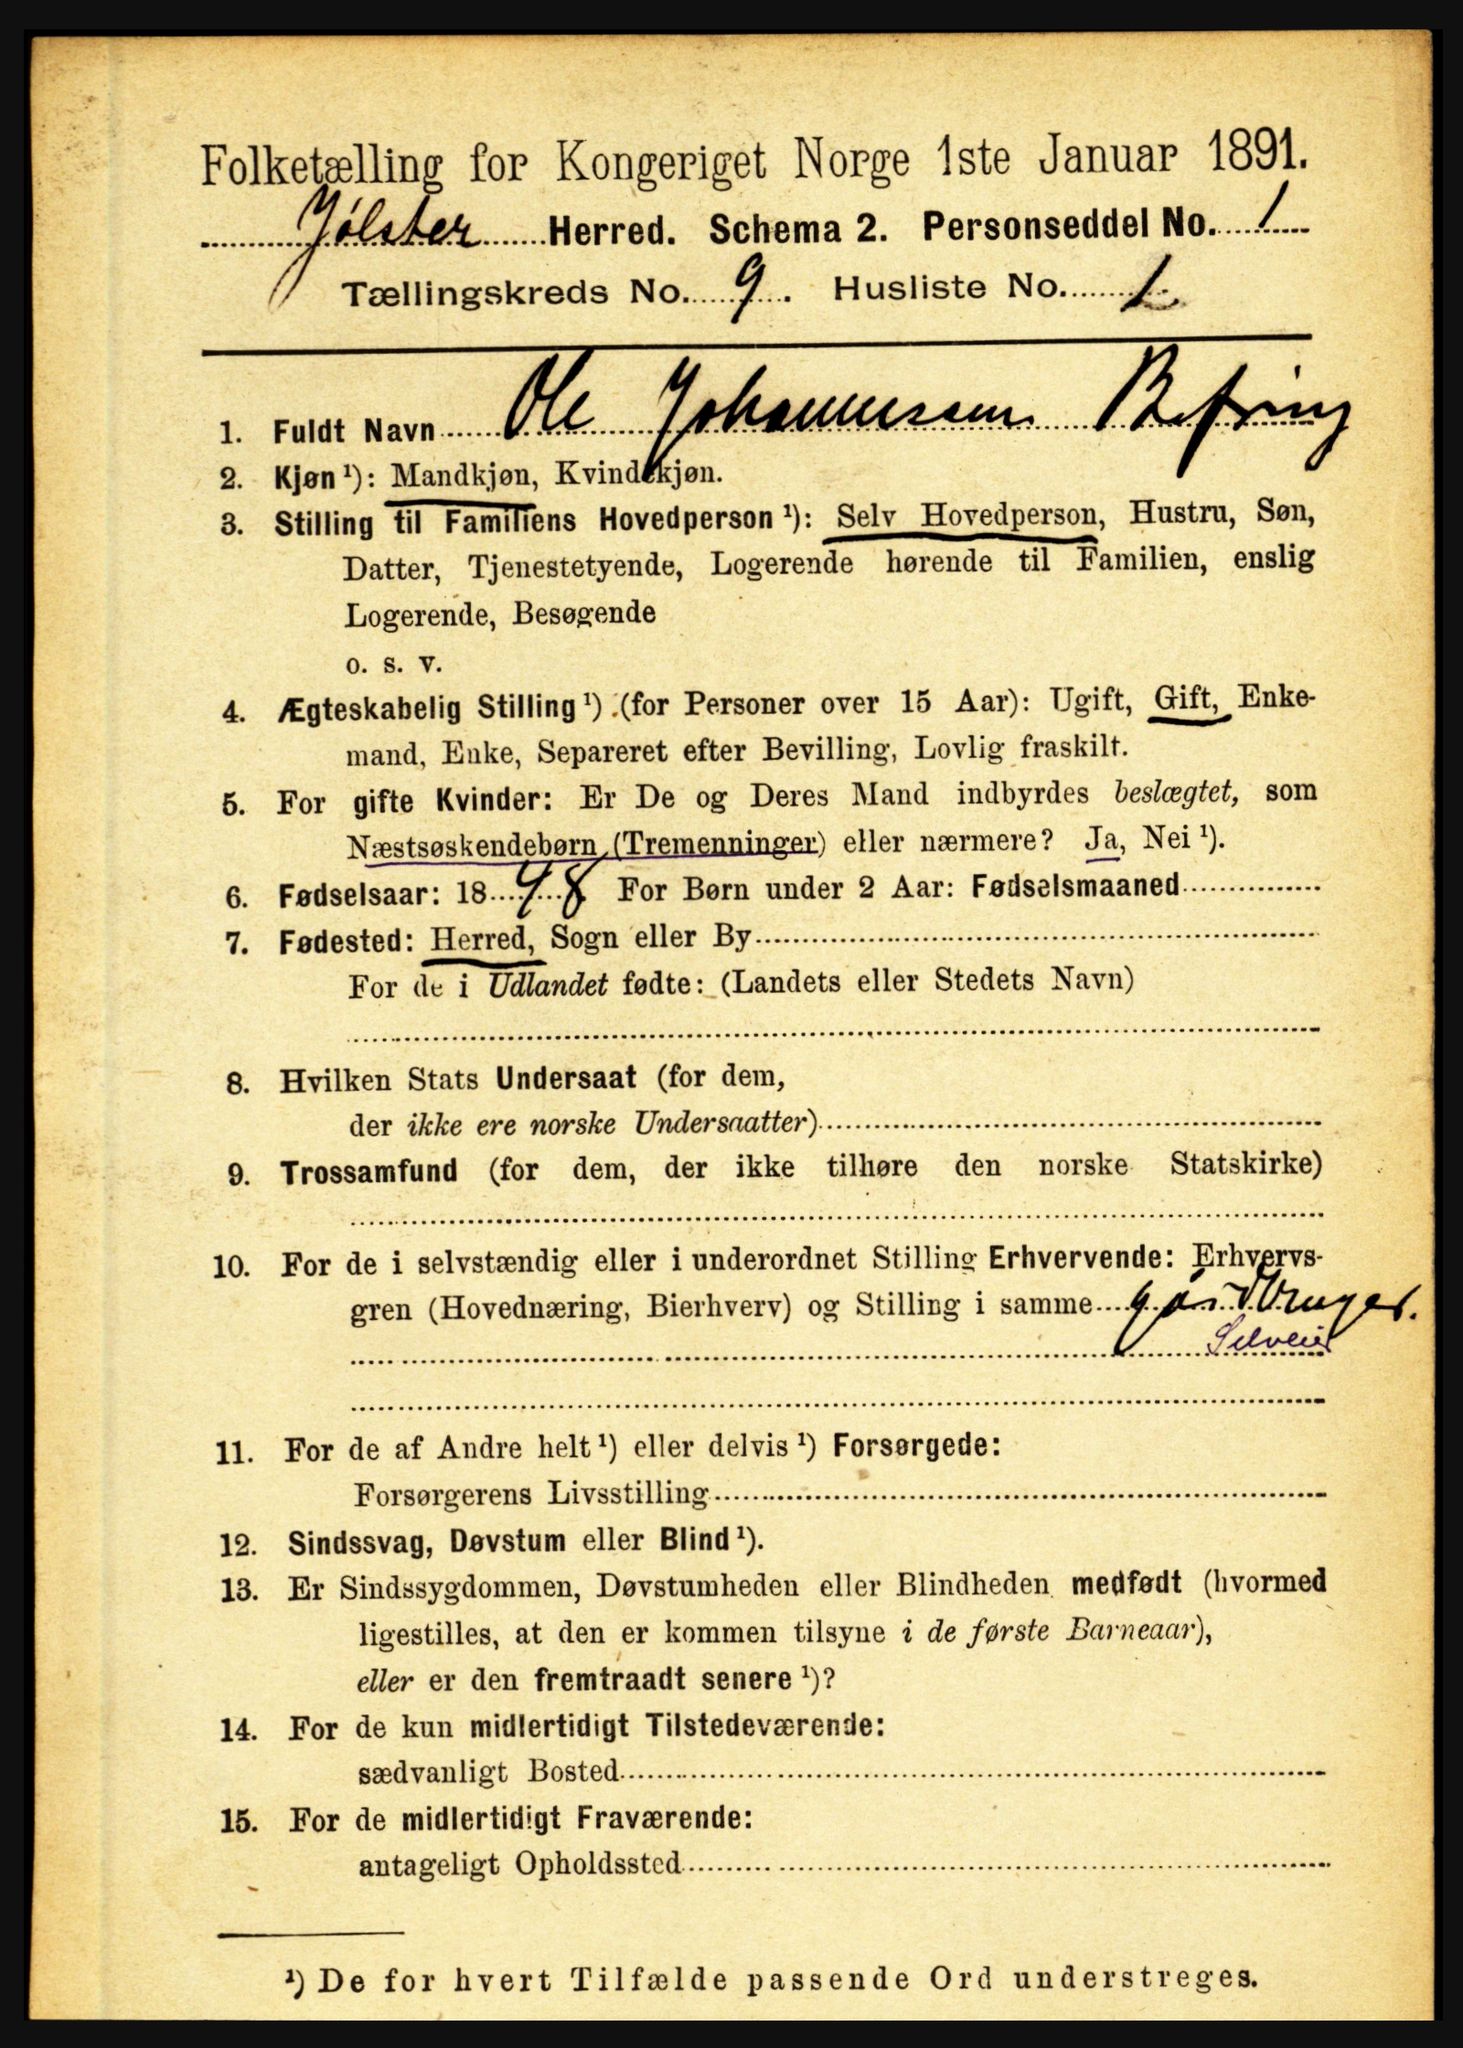 Folketælling for Kongeriget Norge 1ste Januar 1891.
Jølster Herred. Schema 2. Personseddel No. 1
Tællingskreds No. 9. Husliste No. 1
1. Fuldt Navn Ole Johannessen Befring
2. Kjøn ¹): Mandkjøn, Kvindekjøn.
3. Stilling til Familiens Hovedperson ¹): Selv Hovedperson, Hustru, Søn,
Datter, Tjenestetyende, Logerende hørende til Familien, enslig
Logerende, Besøgende
o. s. v.
4. Ægteskabelig Stilling ¹) (for Personer over 15 Aar): Ugift, Gift, Enke-
mand, Enke, Separeret efter Bevilling, Lovlig fraskilt.
5. For gifte Kvinder: Er De og Deres Mand indbyrdes beslægtet, som
Næstsøskendebørn (Tremenninger) eller nærmere? Ja, Nei ¹).
6. Fødselsaar: 1848 For Børn under 2 Aar: Fødselsmaaned
7. Fødested: Herred, Sogn eller By
For de i Udlandet fødte: (Landets eller Stedets Navn)
8. Hvilken Stats Undersaat (for dem,
der ikke ere norske Undersaatter)
9. Trossamfund (for dem, der ikke tilhøre den norske Statskirke)
10. For de i selvstændig eller i underordnet Stilling Erhvervende: Erhvervs-
gren (Hovednæring, Bierhverv) og Stilling i samme gårdbruger.
Selveier
11. For de af Andre helt ¹) eller delvis ¹) Forsørgede:
Forsørgerens Livsstilling
12. Sindssvag, Døvstum eller Blind ¹).
13. Er Sindssygdommen, Døvstumheden eller Blindheden medfødt (hvormed
ligestilles, at den er kommen tilsyne i de første Barneaar),
eller er den fremtraadt senere ¹)?
14. For de kun midlertidigt Tilstedeværende:
sædvanligt Bosted
15. For de midlertidigt Fraværende:
antageligt Opholdssted
¹) De for hvert Tilfælde passende Ord understreges.